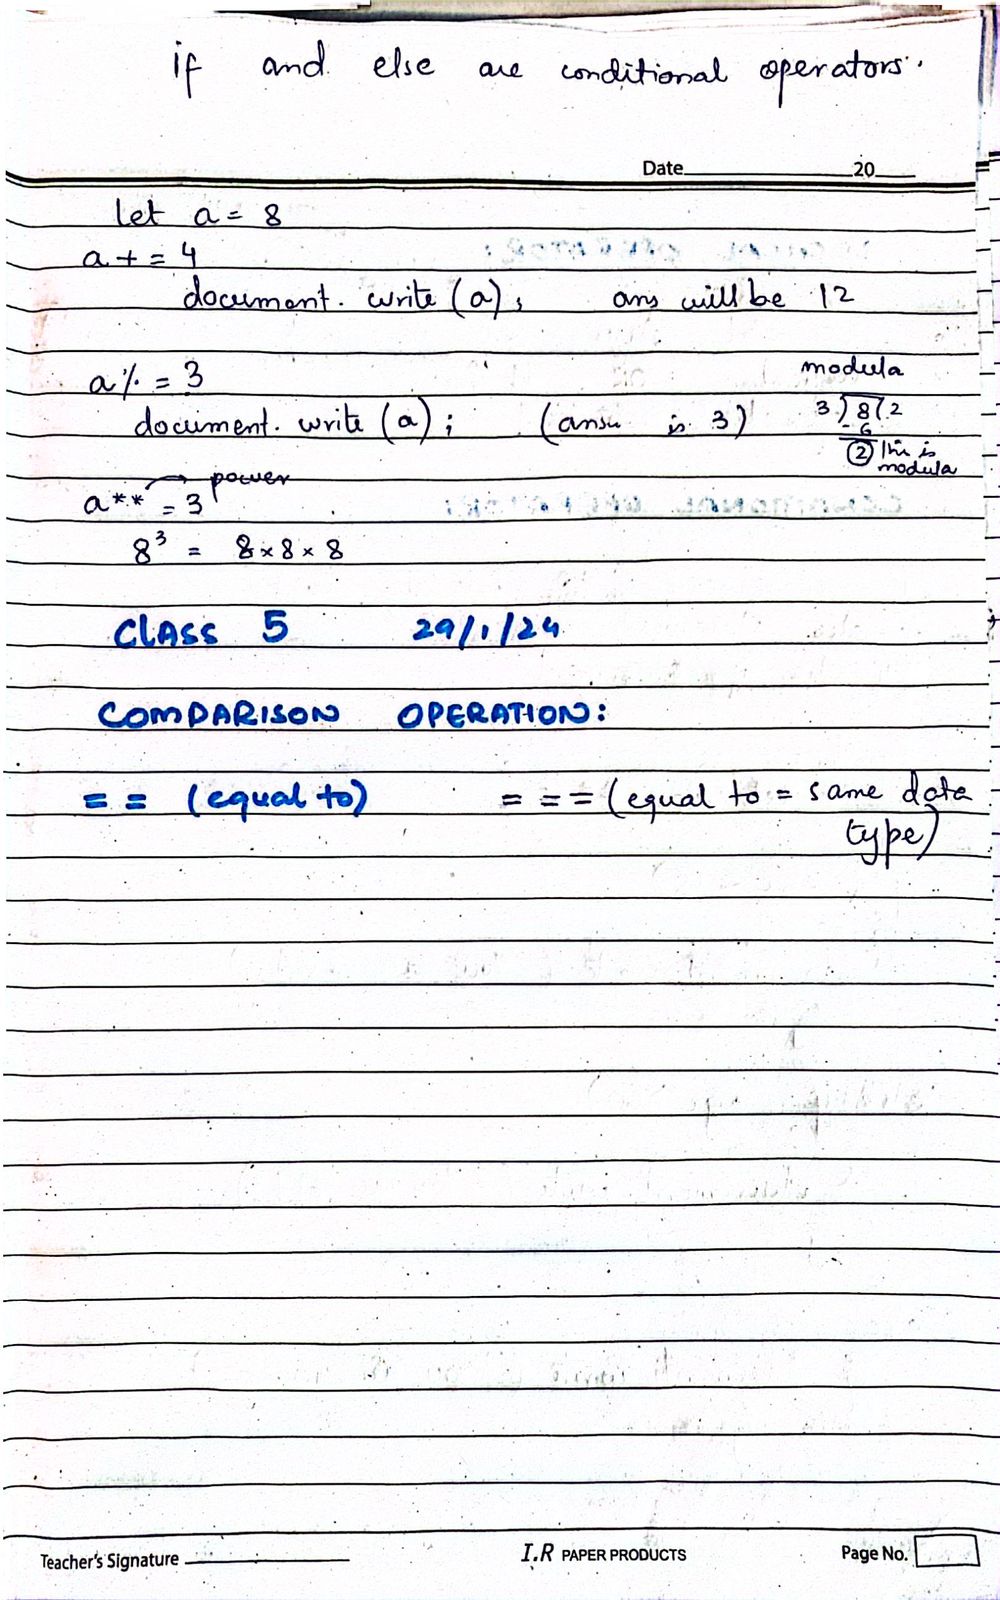 if and else are conditional operators.
Date 20
let a = 8
a + = 4
document. write (a); ans will be 12
modula
a % = 3
3) 8 (2
document. write (a); (ansu is 3)
- 6
2 This is
modula
power
a ** = 3
8³ = 8 × 8 × 8
CLASS 5 29/1/24
COMPARISON OPERATION:
= = (equal to) = = = (equal to = same data
type)
Teacher's Signature I.R PAPER PRODUCTS Page No.